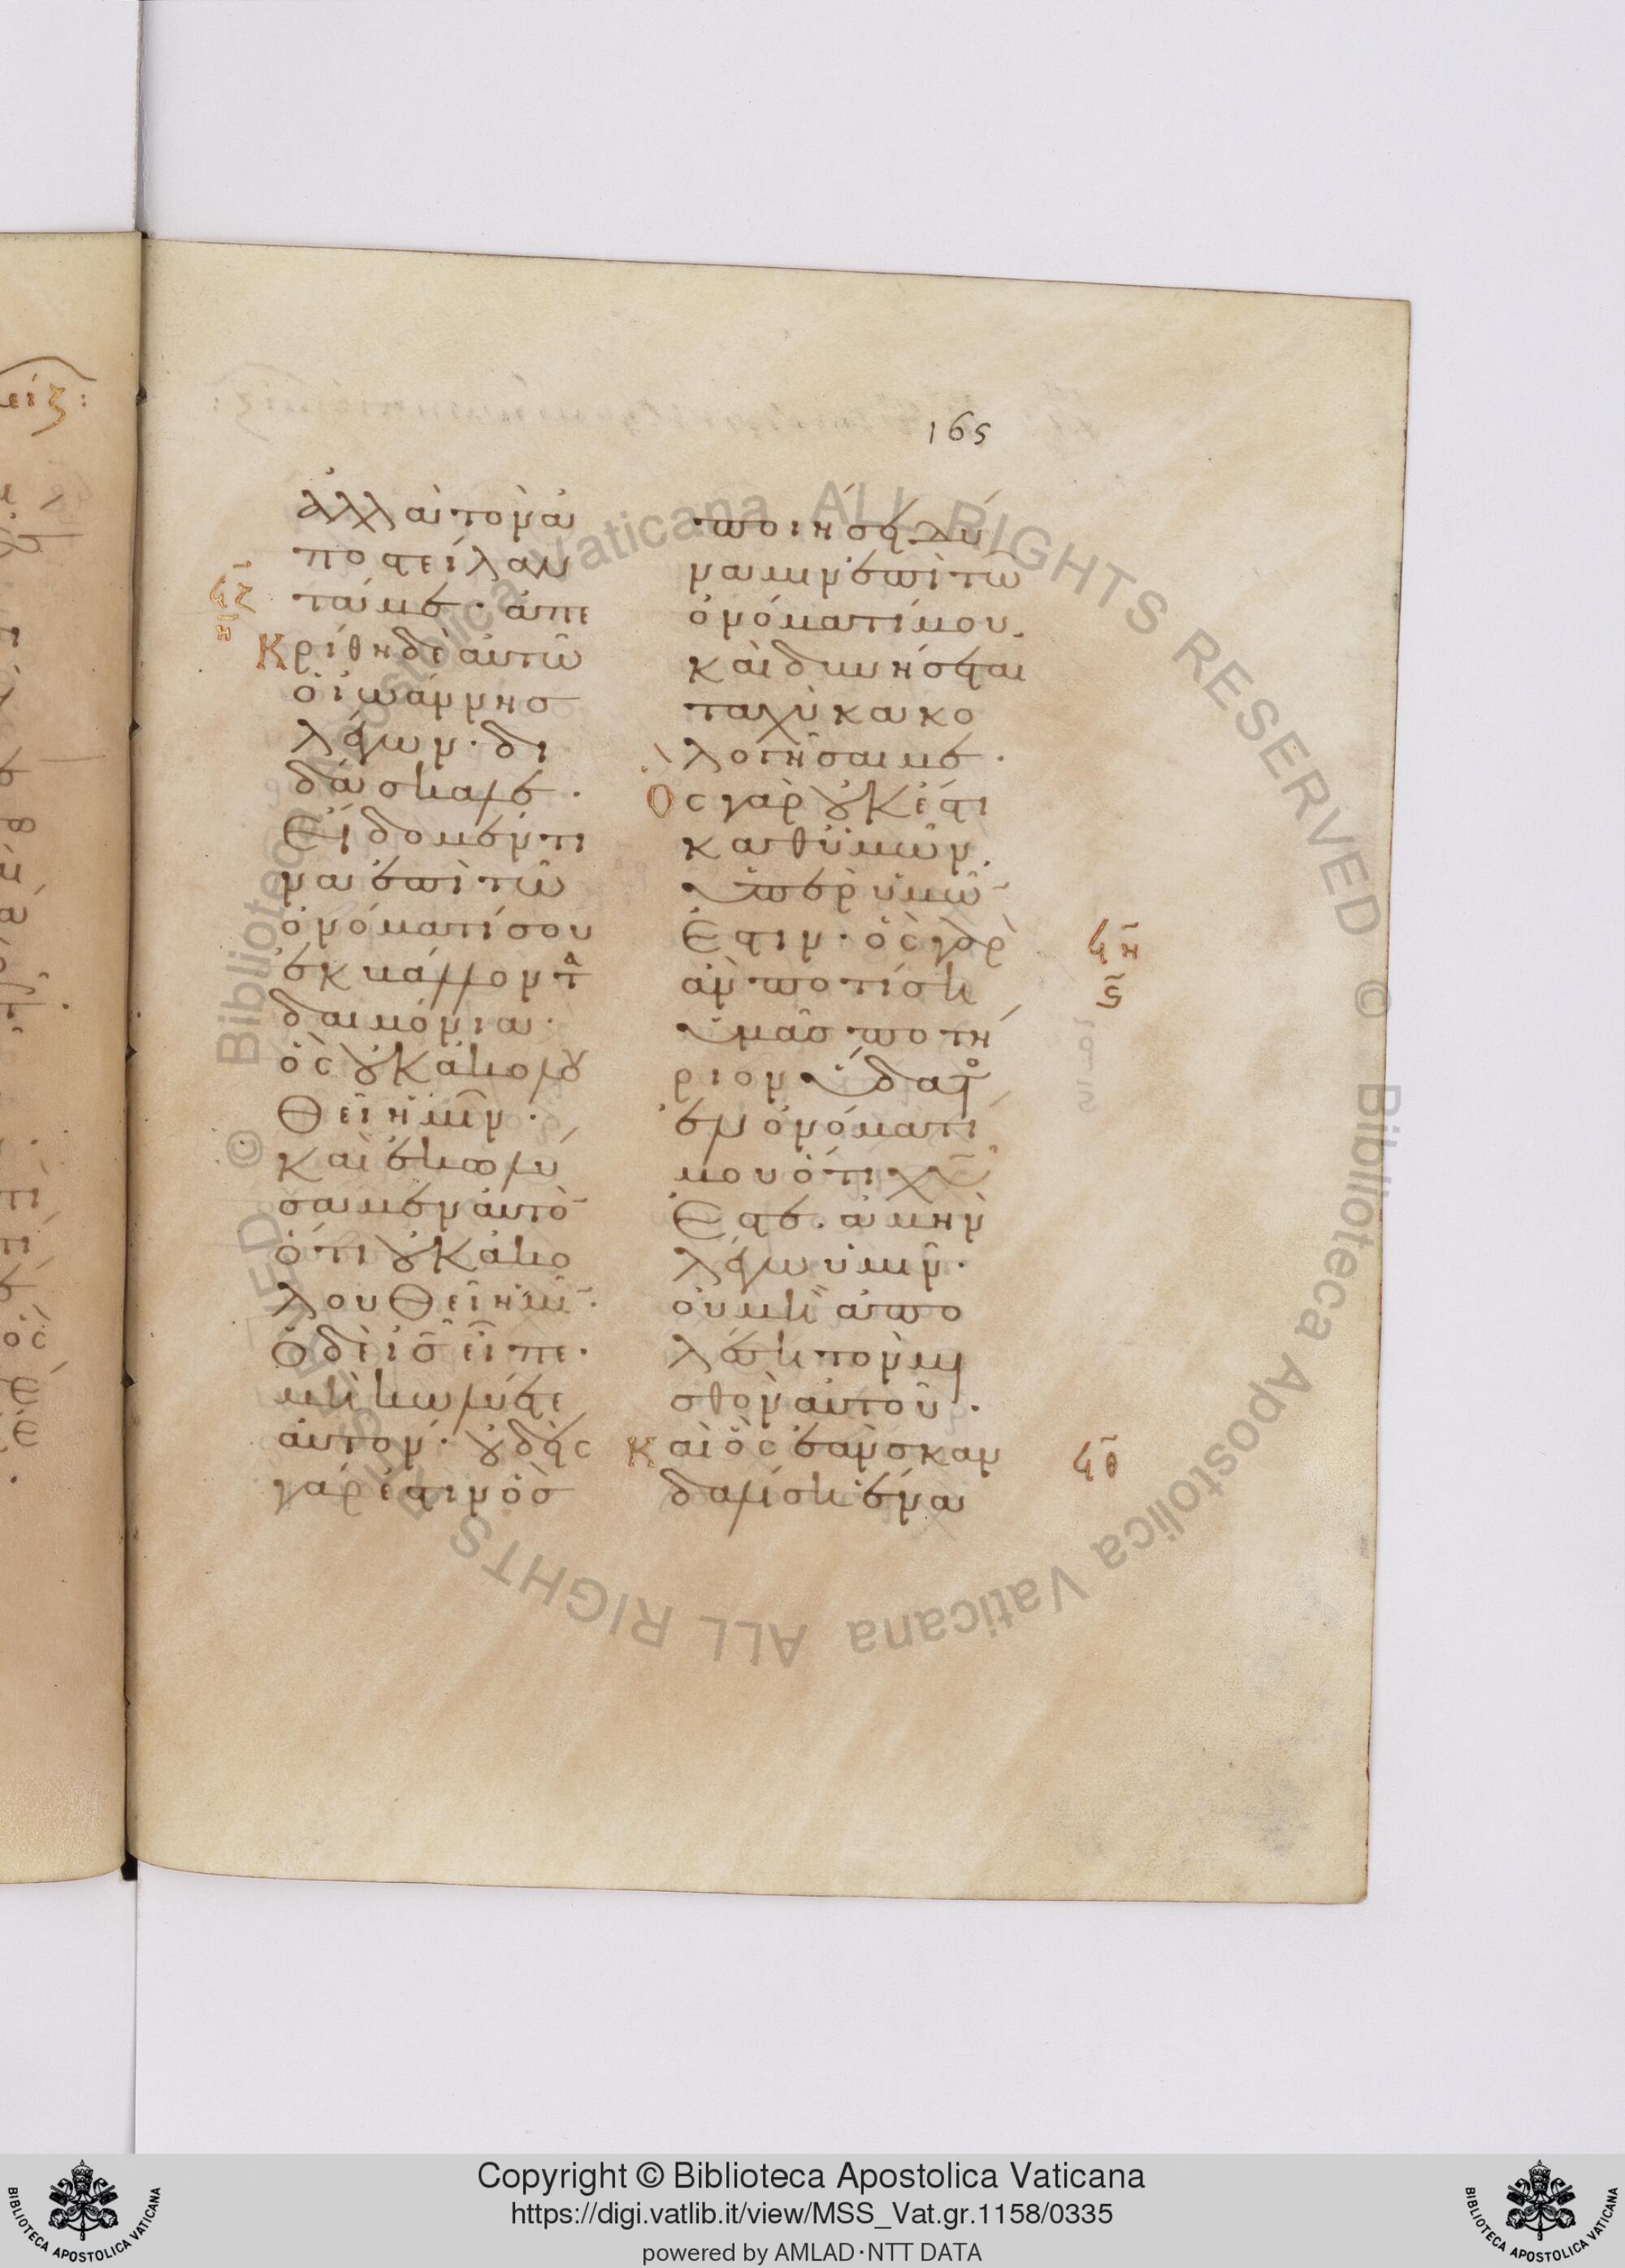 165
ἀλλὰ τὸν ἀ
ποστείλαν
τά με· ἀπε
ϟζ
η
κρίθη δὲ αὐτῶ
ὁ ἰωάννησ
λέγων· δι
δάσκαλε·
εἴδομέν τι
να ἐπὶ τῶ
ὀνόματί σου
ἐκβάλλοντα
δαιμόνια·
ὃς οὐκ ἀκολου
θεῖ ἡμῖν·
καὶ ἐκωλύ
σαμεν αὐτὸ
ὅτι οὐκ ἀκο
λουθεῖ ἡμῖ·
ὁ δὲ ισ εἶπε·
μὴ κωλύετε
αὐτόν· οὐδεὶς
γάρ ἐστιν ὃσ
ποιήσει δύ
ναμιν ἐπὶ τῶ
ὀνόματί μου.
καὶ δυνήσεται
ταχὺ κακο
λογῆσαι με·
Ὃς γὰρ οὐκ ἔστι
καθ' ὑμῶν.
ὑπὲρ ὑμῶ
ἐστιν· ὃς γὰρ
ϟη
ϛ
ἀν ποτίση
ὑμᾶσ ποτή
ριον ὕδατος
ἐν ὀνόματί
μου ὅτι χυ
ἐστε· ἀμὴν
λέγω ὑμῖν·
οὐ μὴ ἀπο
λέση τὸν μι
σθὸν αὐτοῦ·
καὶ ὃς ἐὰν σκαν
ϟθ
δαλίση ἕνα
Copyright © Biblioteca Apostolica Vaticana
https://digi.vatlib.it/view/MSS_Vat.gr.1158/0335
powered by AMLAD·NTT DATA
BIBLIOTECA APOSTOLICA VATICANA
BIBLIOTECA APOSTOLICA VATICANA
© Biblioteca Apostolica Vaticana ALL RIGHTS RESERVED © Biblioteca Apostolica Vaticana ALL RIGHTS RESERVED